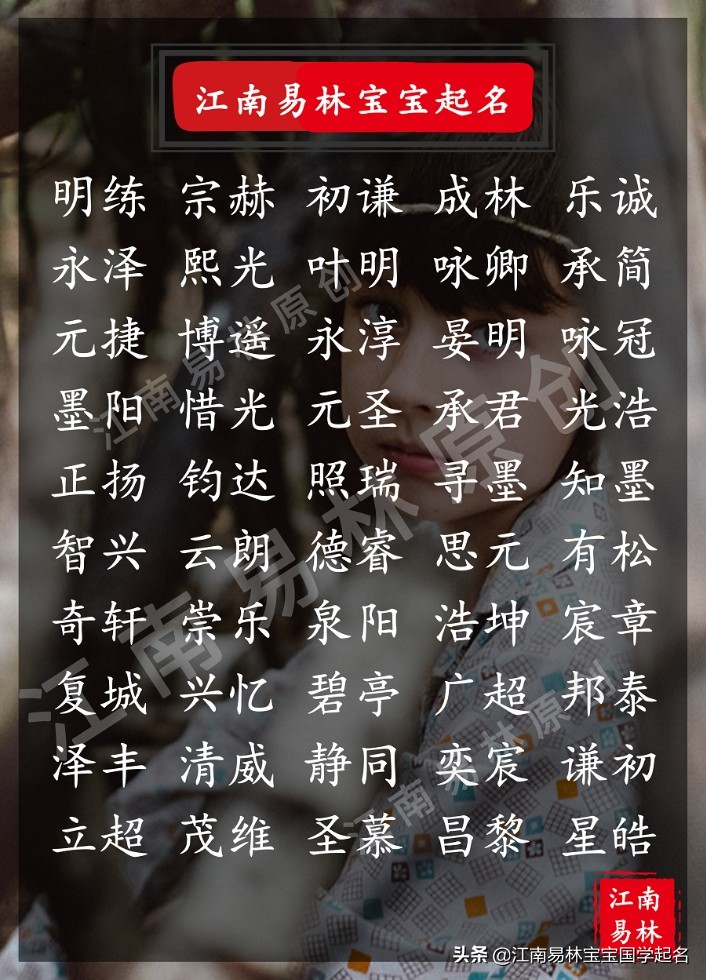 江南易林宝宝起名
明练 宗赫 初谦 成林 乐诚
永泽 熙光 叶明 咏卿 承简
元捷 博遥 永淳 晏明 咏冠
墨阳 惜光 元圣 承君 光浩
正扬 钧达 照瑞 寻墨 知墨
智兴 云朗 德睿 思元 有松
奇轩 崇乐 泉阳 浩坤 宸章
复城 兴忆 碧亭 广超 邦泰
泽丰 清威 静同 奕宸 谦初
立超 茂维 圣慕 昌黎 星皓
江南易林原创
江南易林原创
江南易林原创
江南
易林
头条 @江南易林宝宝国学起名